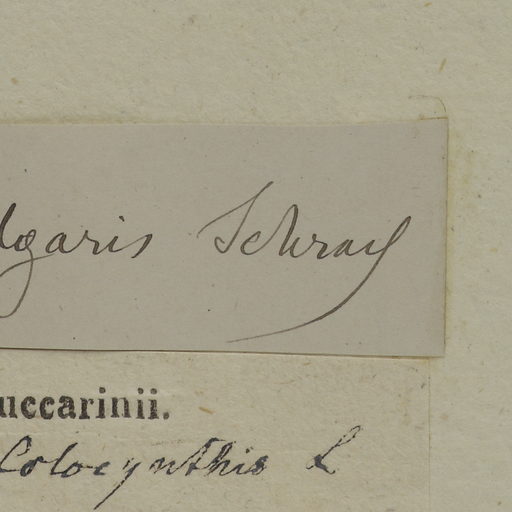 lgaris Schrad
uccarinii.
Colocynthis L